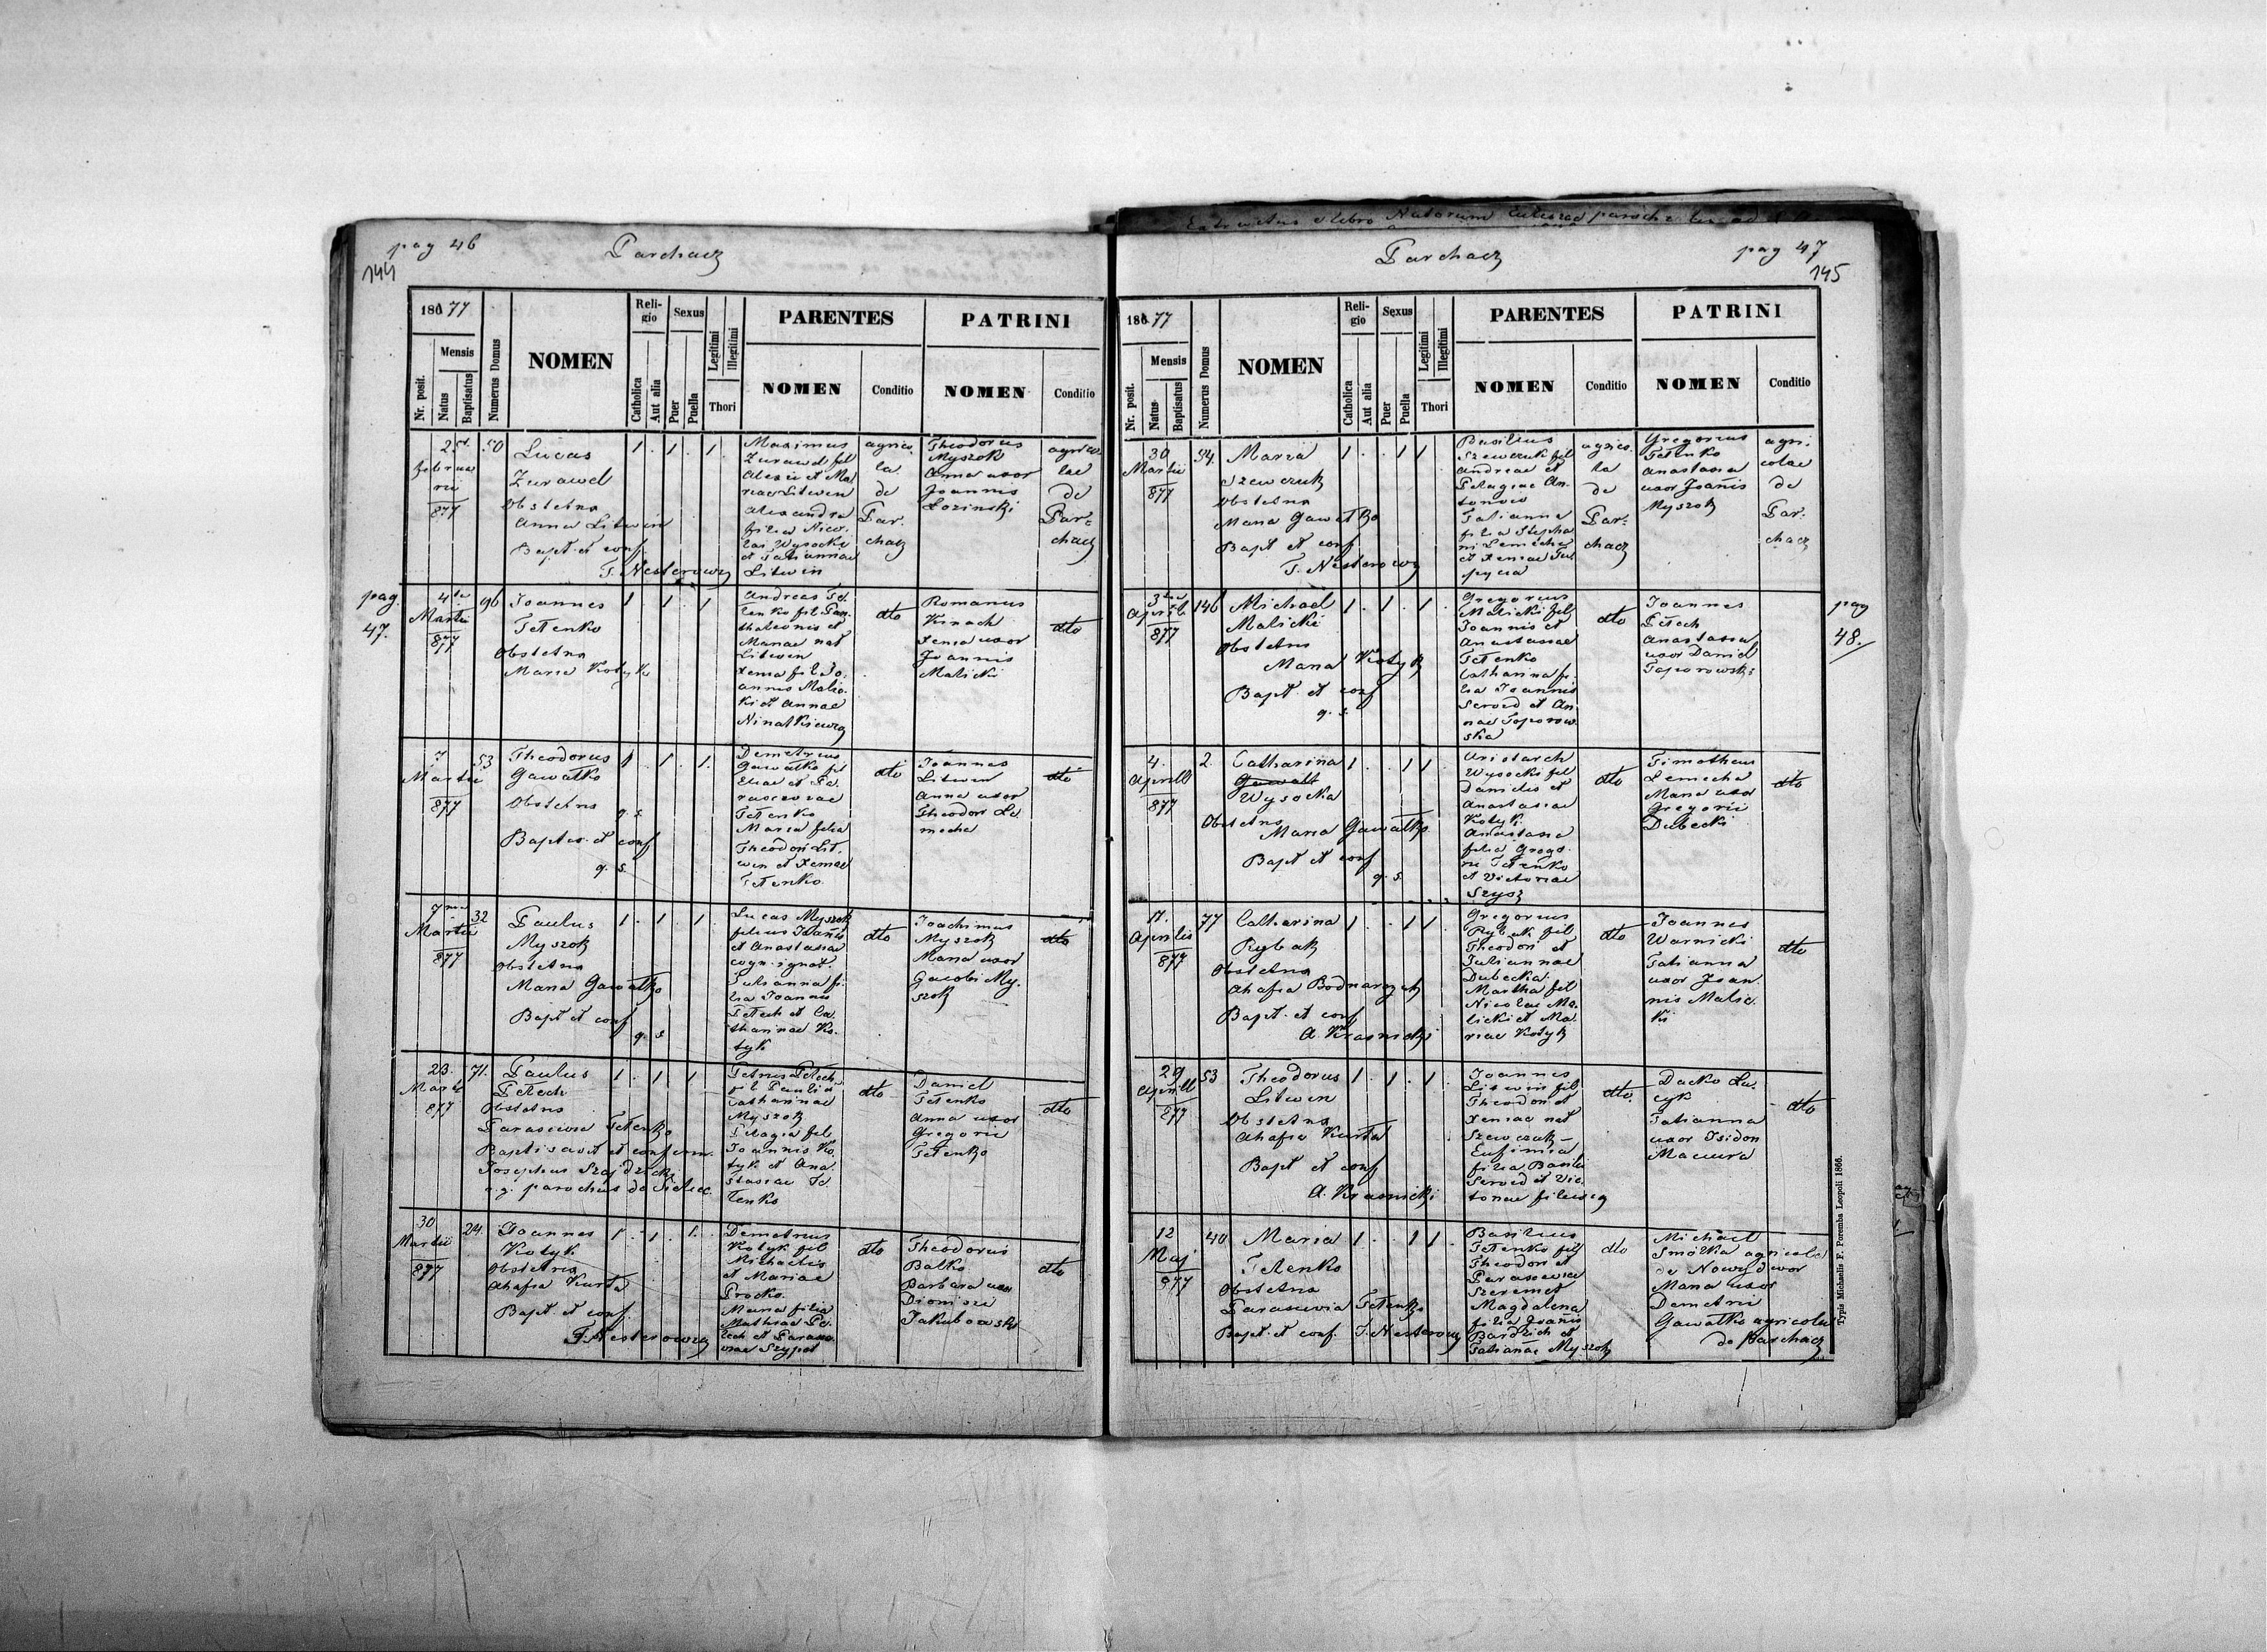 pag 46
144
Parchacz
1877
Nr. posit.
Mensis
Natus
Baptisatus
Numerus Domus
NOMEN
Religio
Catholica
Aut alia
Sexus
Puer
Puella
Legitimi
Illegitimi
Thori
PARENTES
NOMEN
Conditio
PATRINI
NOMEN
Conditio
25
februa
rii
877
50
Lucas
Zurawel
Obstetrix
Anna Litwin
Bapt. et conf.
T. Nesterowicz
1. 1. 1.
Maximus
Zurawel fil
Alexii et Ma
riae Litwin
Alexandra
filia Nico-
lai Wysocki
et Tatiannae
Litwin
agrico-
la
de
Par-
chacz
Theodorus
Myszok
Anna uxor
Joannis
Lozinski
agrico
lae
de
Par-
chacz
pag.
47.
4
Martii
877
96
Joannes
Tetenko
Obstetrix
Maria Kotyk
1 1 1
Andreas Te-
tenko fil Pan-
thaleonis et
Mariae nat
Litwin
Xenia fil Jo-
annis Malic-
ki et Annae
dto
Romanus
Kinach
Xenia uxor
Joannis
Malicki
dto
7
Martii
877
53
Theodorus
Gawalko
Obstetrix
q. s.
Baptis. et conf
q. s.
1 1 1.
Demetrius
Gawalko fil
Eliae et Pa-
rasceviae
Tetenko
Maria filia
Theodori Lit-
win et Xeniae
Tetenko.
dto
Joannes
Litwin
Anna uxor
Theodori Le-
mecha
dto
7
Martii
877
32
Paulus
Myszok
Obstetrix
Maria Gawalko
Bapt et conf
q. s
1. 1. 1.
Lucas Myszok
filius Joannis
et Anastasiae
cogn. ignot.
Julianna fi-
lia Joannis
Petech et Ca-
tharinae Ko-
tyk
dto
Joachimus
Myszok
Maria uxor
Jacobi My-
szok
dto
23.
Martii
877
71.
Paulus
Petech
Obstetrix
Parascevia Tetenko
Baptisavit et confirm.
Josephus Szajdzicki
parochus de Sielec
1. 1 1
Petrus Petech
fil Pauli et
Catharinae
Myszok
Pelagia fil
Joannis Ko-
tyk et Ana
stasiae Te-
tenko
dto
Daniel
Tetenko
Anna uxor
Gregorii
Tetenko
dto
30
Martii
877
24.
Joannes
Kotyk
Obstetrix
Ahafia Kurta
Bapt. et conf.
T. Nesterowicz
1. 1. 1.
Demetrius
Kotyk fil
Michaelis
et Mariae
Procko.
Maria filia
Mathiae Pe-
tech et Parasce-
viae Szypot
dto
Theodorus
Balko
Barbara uxor
Dionisii
Jakubowski
dto
Parchacz
pag 47
145
1877
Nr. posit.
Mensis
Natus
Baptisatus
Numerus Domus
NOMEN
Religio
Catholica
Aut alia
Sexus
Puer
Puella
Legitimi
Illegitimi
Thori
PARENTES
NOMEN
Conditio
PATRINI
NOMEN
Conditio
30
Martii
877
54.
Maria
Szewczuk
Obstetrix
Maria Gawalko
Bapt et conf
T. Nesterowicz
1. 1 1
Basilius
Szewczuk fil
Andreae et
Pelagiae An-
tonow
Tatianna
filia Stepha
ni Lemecha
et Xeniae
agrico-
la
de
Par-
chacz
Gregorius
Tetenko
Anastasia
uxor Joannis
Myszok
agri-
colae
de
Par-
chacz
3
Aprili
877
146
Michael
Malicki
Obstetrix
Maria Kotyk
Bapt et conf
q. s.
1. 1. 1.
Gregorius
Malicki fil
Joannis et
Anastasiae
Tetenko
Catharina fi-
lia Joannis
Seroed et An-
nae Toporow-
ska
dto
Joannes
Petech
Anastasia
uxor Daniel
Toporowski
pag
48.
4.
Aprill
877
2.
Catharina
Gawalk
Wysocka
Obstetrix
Maria Gawalko
Bapt et conf
q. s
1. 1 1
Aristarch
Wysocki fil
Danielis et
Anastasiae
Kotyk.
Anastasia
filia Grego-
rii Tetenko
et Victoriae
dto
Timotheus
Lemecha
Maria uxor
Gregorii
Dubecki
dto
17.
Aprilis
877
77
Catharina
Rybak
Obstetrix
Ahafia Bodnarczuk
Bapt. et conf
A. Krasnicki
1. 1 1
Gregorius
Rybak fil
Theodori et
Juliannae
Dubecka.
Martha fil
Nicolai Ma-
licki et Ma-
riae Kotyk
dto
Joannes
Warnicki
Tatianna
uxor Joan-
nis Malic-
ki
dto
29
Aprill
877
53
Theodorus
Litwin
Obstetrix
Ahafia Kurta
Bapt et conf
A. Krasnicki
1. 1. 1.
Joannes
Litwin fil
Theodori et
Xeniae nat
Szewczuk -
Eufimia
filia Basilii
Seroed et Vic-
toriae
dto.
Dacko La-
cyk
Tatianna
uxor Isidori
Maciura
dto
12
Maj
877
40
Maria
Tetenko
Obstetrix
Parascevia Tetenko
Bapt. et conf. T. Nesterowicz
1. 1 1.
Basilius
Tetenko fil
Theodori et
Parasceviae
Szeremet
Magdalena
filia Joannis
et
Tatianae Myszok
dto
Michael
Smolka agricola
de Nowydwor
Maria uxor
Demetrii
Gawalko agricolae
de Parchacz
Typis Michaelis F. Poremba Leopoli 1866.